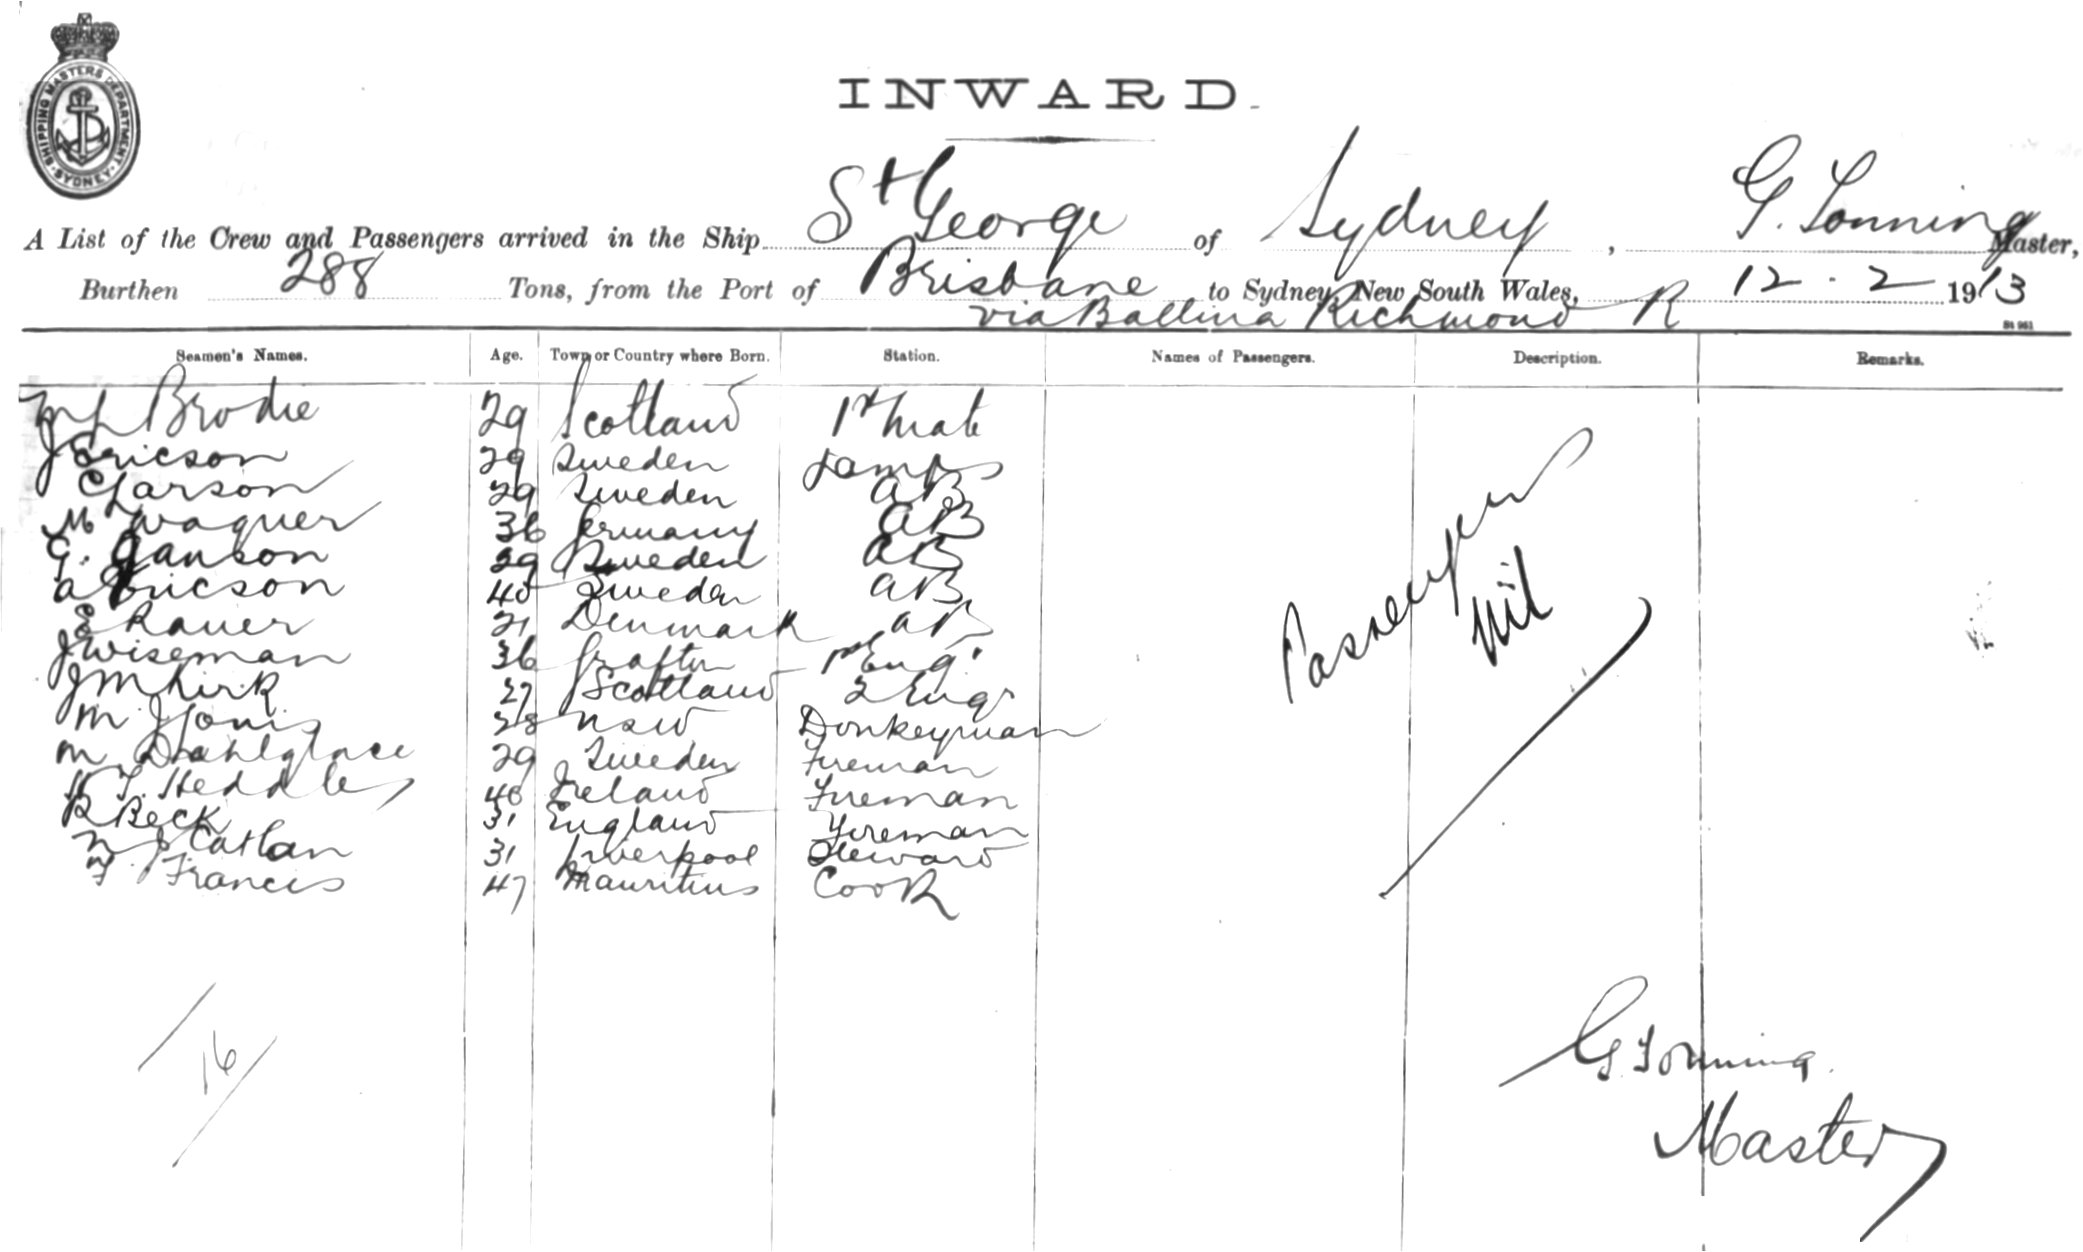 SHIPPING MASTERS DEPARTMENT · SYDNEY ·
INWARD.
A List of the Crew and Passengers arrived in the Ship St George of Sydney, G. Tonning Master,
Burthen 288 Tons, from the Port of Brisbane to Sydney, New South Wales, 12 . 2 1913
via Ballina Richmond R
Seamen's Names. Age. Town or Country where Born. Station. Names of Passengers. Description. Remarks.
Brodie 29 Scotland 1st Mate
J Ericson 29 Sweden Lamps
C Larson 29 Sweden AB
M Wagner 36 Germany AB
G. Janson 29 Sweden AB
A Ericson 40 Sweden AB
E Rauer 21 Denmark AB
J Wiseman 36 Grafton 1st Eng'
J M Kirk 27 Scotland 2 Engr
M J 28 NSW Donkeyman
M 29 Sweden Fireman
H T. Heddles 40 Ireland Fireman
R Beck 31 England Fireman
Catlan 31 Liverpool Steward
Francis 47 Mauritius Cook
Passengers
Nil
16
G Tonning.
Master